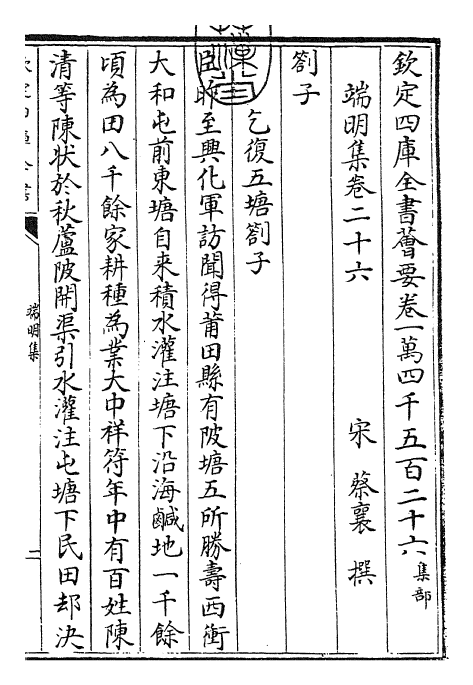 欽定四庫全書薈要卷一萬四千五百二十六集部
端明集卷二十六
宋 蔡襄 撰
劄子
乞復五塘劄子
臣昨至興化軍訪聞得莆田縣有陂塘五所勝壽西衝
大和屯前東塘自来積水灌注塘下沿海鹹地一千餘
頃為田八千餘家耕種為業大中祥符年中有百姓陳
清等陳状於秋蘆陂開渠引水灌注屯塘下民田却决
端明集
二